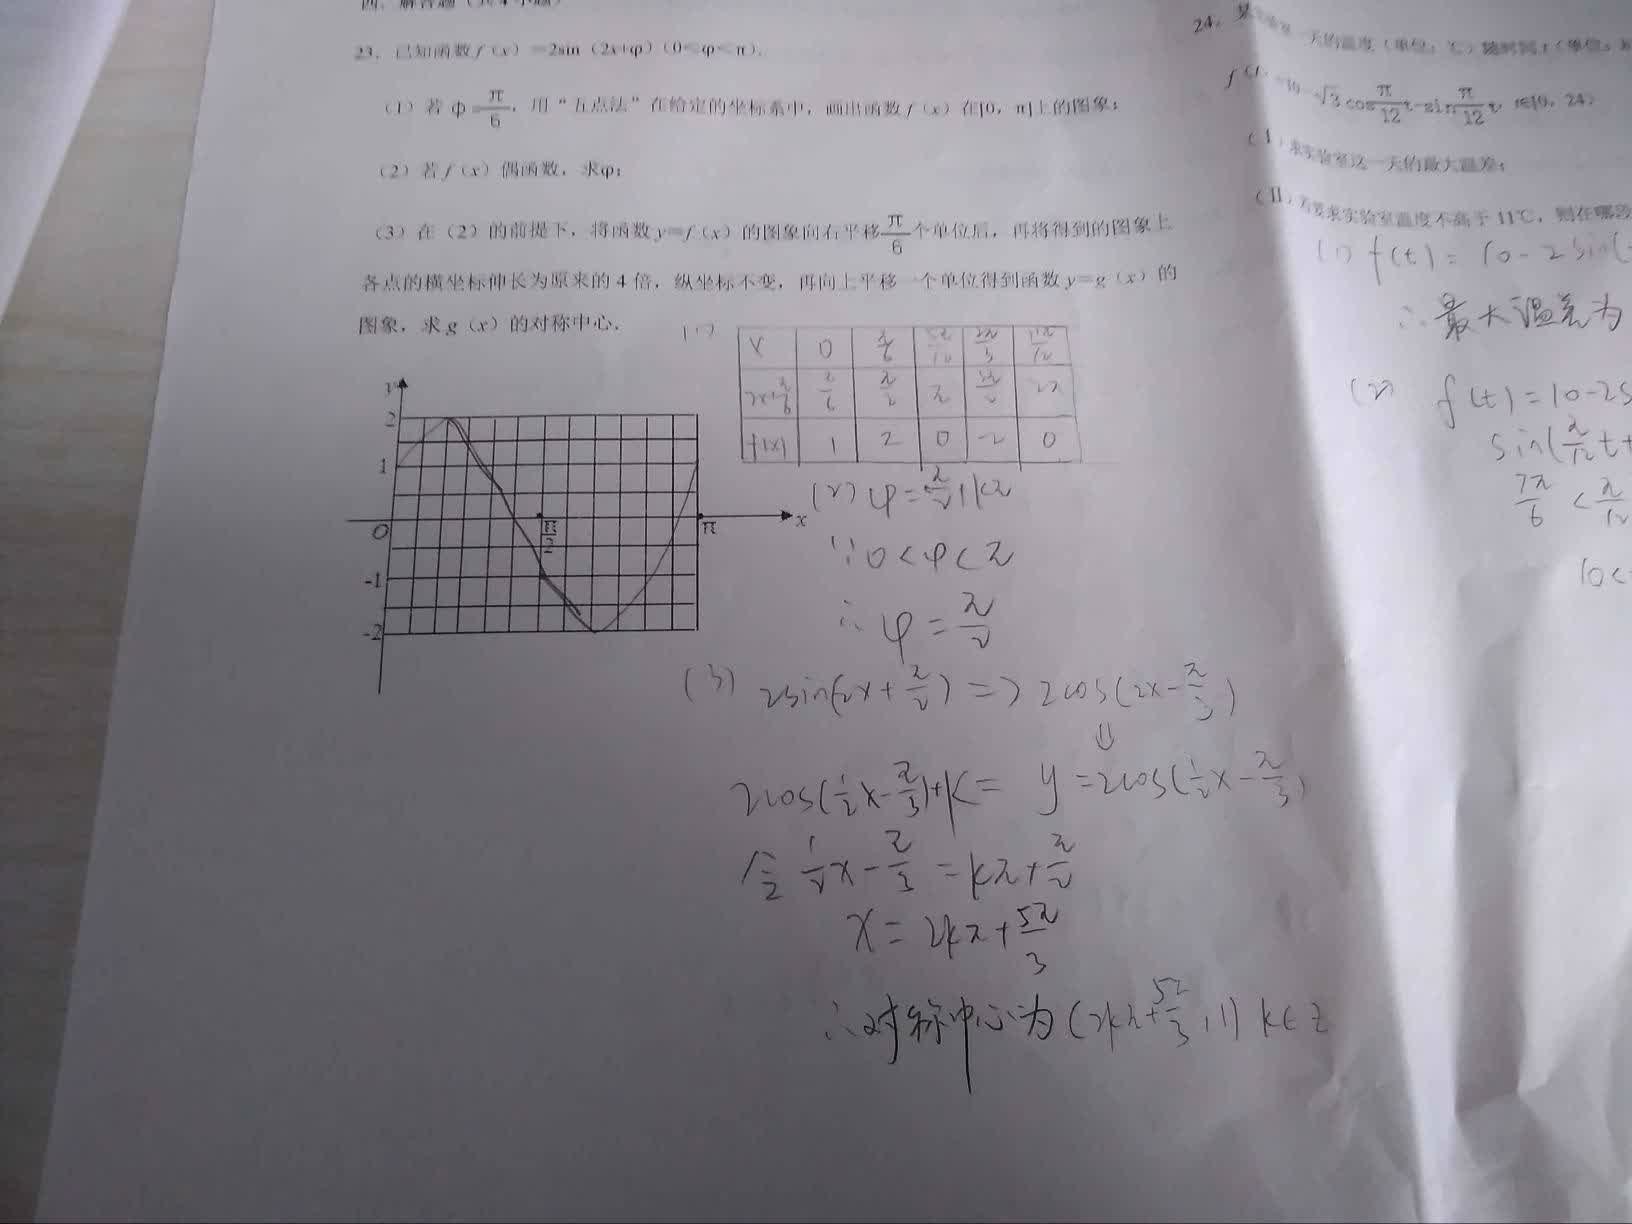 23. 已知函数 f（x）=2sin（2x+φ）（0<φ<π）.
（1）若 φ=π/6, 用“五点法”在给定的坐标系中，画出函数 f（x）在[0，π]上的图象；
（2）若 f（x）偶函数，求φ；
（3）在（2）的前提下，将函数 y=f（x）的图象向右平移π/6个单位后，再将得到的图象上
各点的横坐标伸长为原来的 4 倍，纵坐标不变，再向上平移一个单位得到函数 y=g（x）的
图象，求 g（x）的对称中心.
(1)
x 0 π/6 5π/12 2π/3 11π/12
2x+π/6 π/6 π/2 π 3π/2 2π
f(x) 1 2 0 -2 0
y
2
1
O
π/2
π
x
-1
-2
(2) φ=π/2+kπ
∵0<φ<π
∴ φ=π/2
(3) 2sin(2x+π/2) => 2cos(2x-π/3)
⇓
2cos(1/2x-π/3)+k= y=2cos(1/2x-π/3)
令 1/2x-π/3=kπ+π/2
x=2kπ+5π/3
∴对称中心为(2kπ+5π/3,1) k∈Z
24.
一天的温度（单位：℃）随时间 t（单位：
√3cosπ/12t-sinπ/12t, t∈[0，24）
（Ⅰ）求实验室这一天的最大温差；
（Ⅱ）若要求实验室温度不高于 11℃，则在哪段
(1) f(t)=10-2sin(
∴最大温差为
(2) f(t)=10-2s
sin(π/12t+
7π/6<π/12
10<